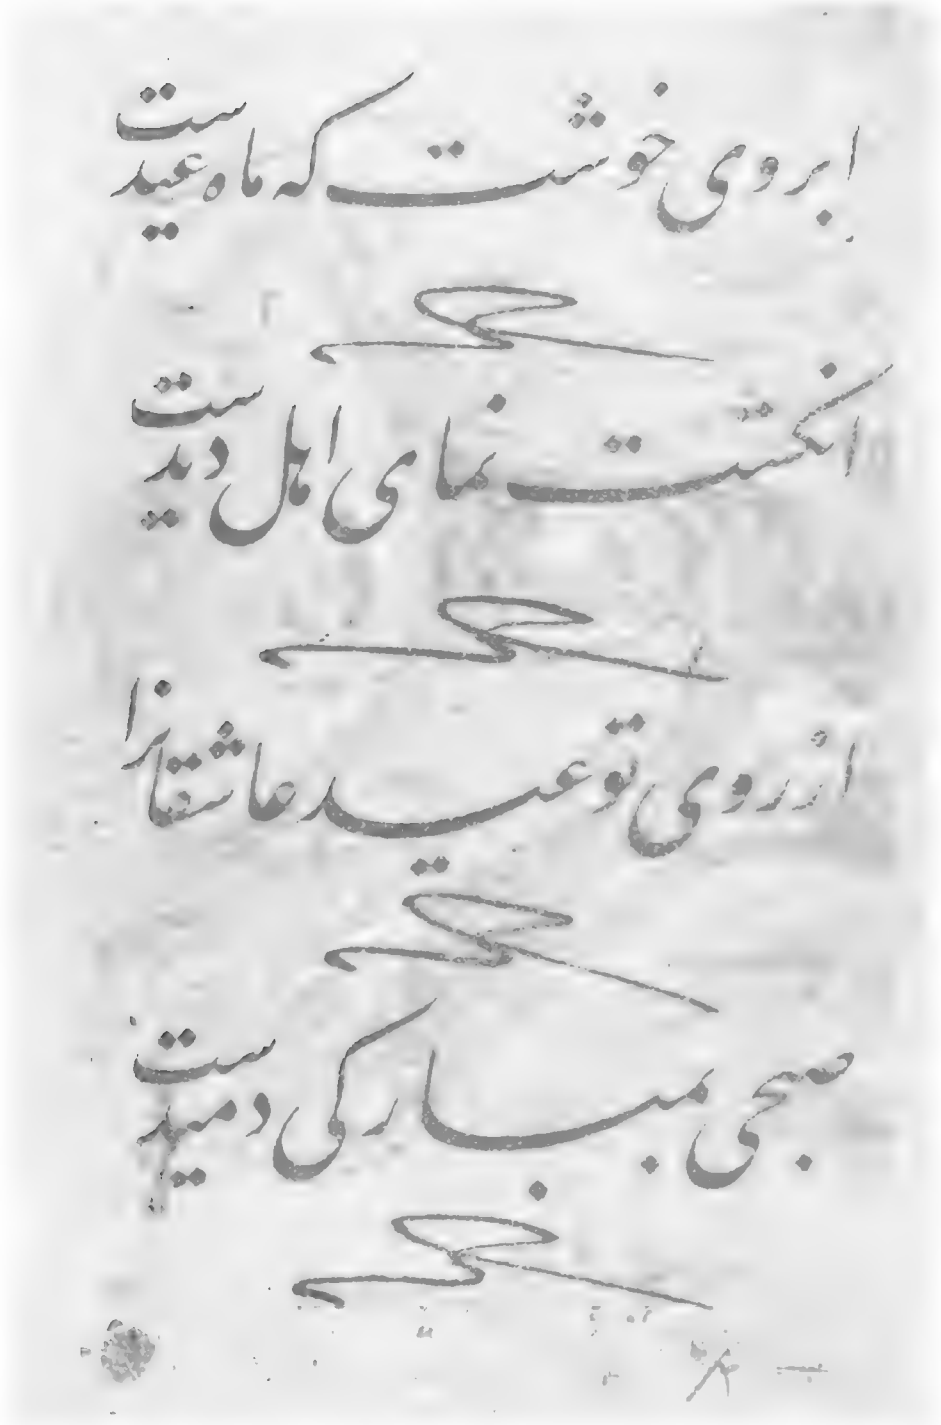 ابروی خوشت که ماه عیدست
انکشت نمای اهل دیدست
از روی تو عید عاشقانرا
صبحی بمبارکی دمیدست